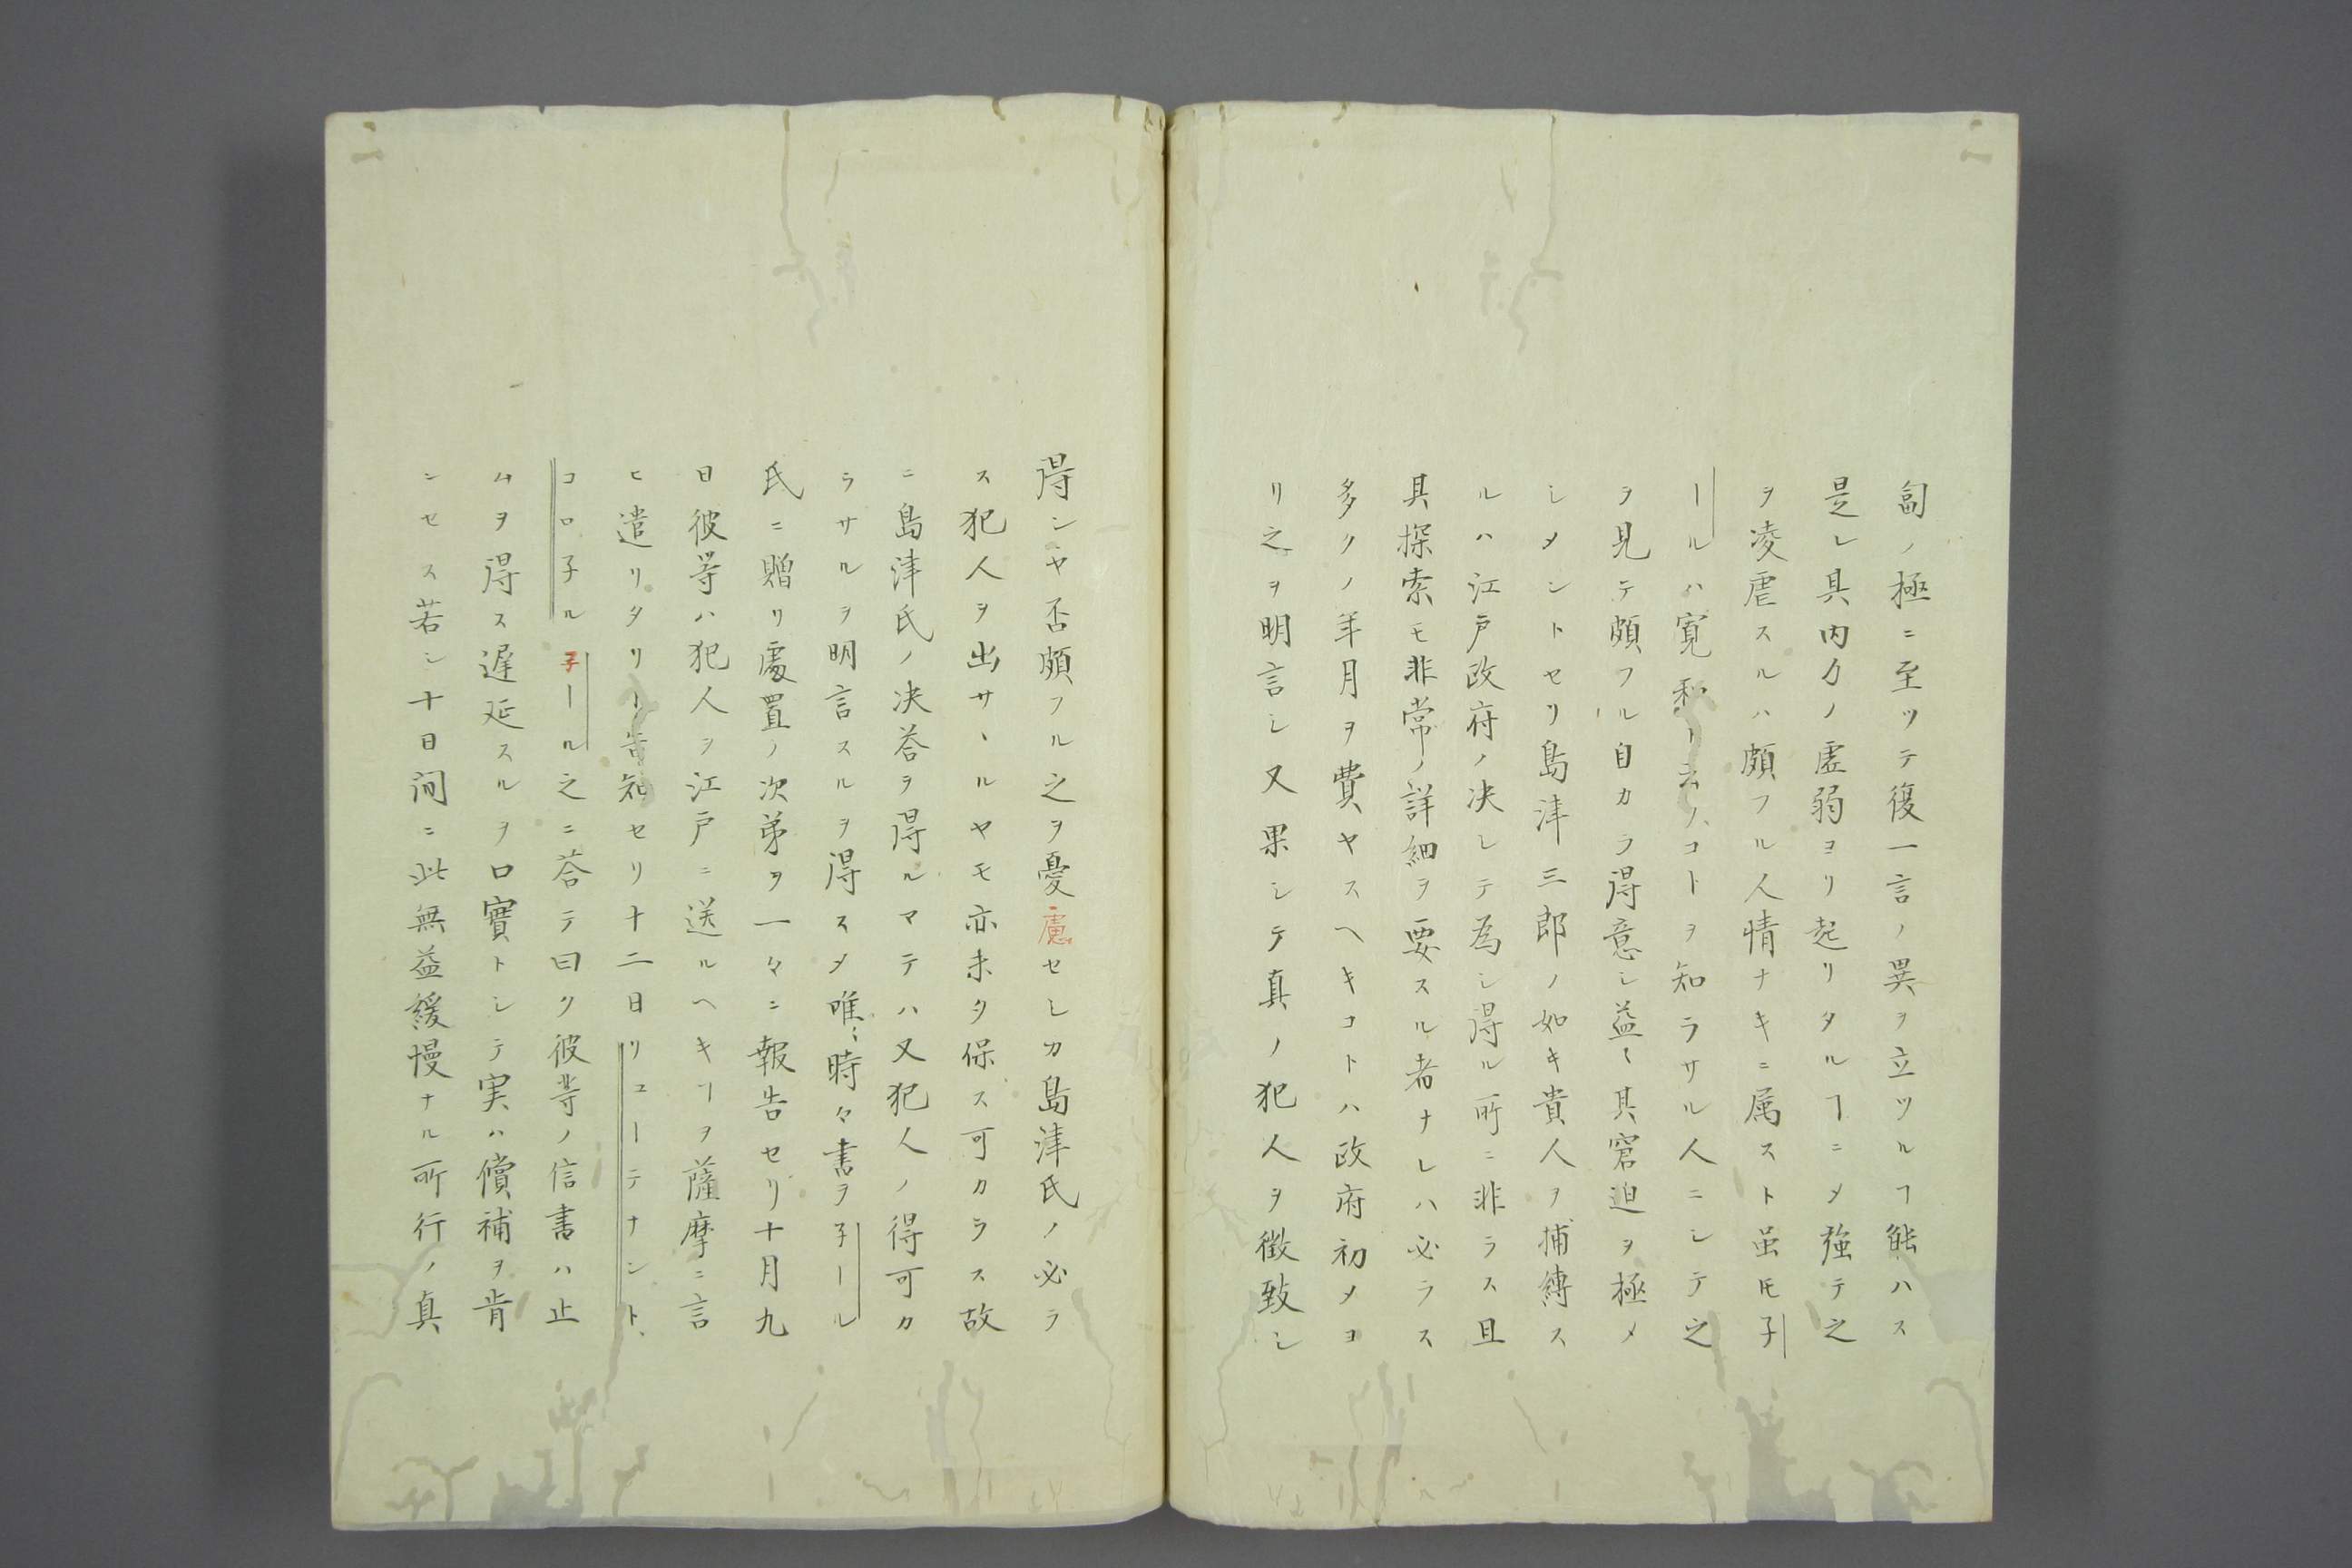 匐ノ極ニ至ツテ復一言ノ異ヲ立ツルヿ能ハス
是レ其内力ノ虚弱ヨリ起リタルヿニメ強テ之
ヲ凌虐スルハ頗フル人情ナキニ属スト虽𪜈子
ールハ寛和ト云フコトヲ知ラサル人ニシテ之
ヲ見テ頗フル自カラ得意シ益〻其窘迫ヲ極メ
シメントセリ島津三郎ノ如キ貴人ヲ捕縛ス
ルハ江戸政府ノ决シテ為シ得ル所ニ非ラス且
其探索モ非常ノ詳細ヲ要スル者ナレハ必ラス
多クノ年月ヲ費ヤスヘキコトハ政府初メヨ
リ之ヲ明言シ又果シテ真ノ犯人ヲ徴致シ
得ンヤ否頗フル之ヲ憂慮セシカ島津氏ノ必ラ
ス犯人ヲ出サヽルヤモ亦未タ保ス可カラス故
ニ島津氏ノ决答ヲ得ルマテハ又犯人ノ得可カ
ラサルヲ明言スルヲ得スメ唯〻時々書ヲ子ール
氏ニ贈リ處置ノ次第ヲ一々ニ報告セリ十月九
日彼等ハ犯人ヲ江戸ニ送ルヘキヿヲ薩摩ニ言
ヒ遣リタリト告知セリ十二日リユーテナント、
コロ子ル子ール之ニ答テ曰ク彼等ノ信書ハ止
ムヲ得ス遅延スルヲ口實トシテ実ハ償補ヲ肯
ンセス若シ十日間ニ此無益緩慢ナル所行ノ真